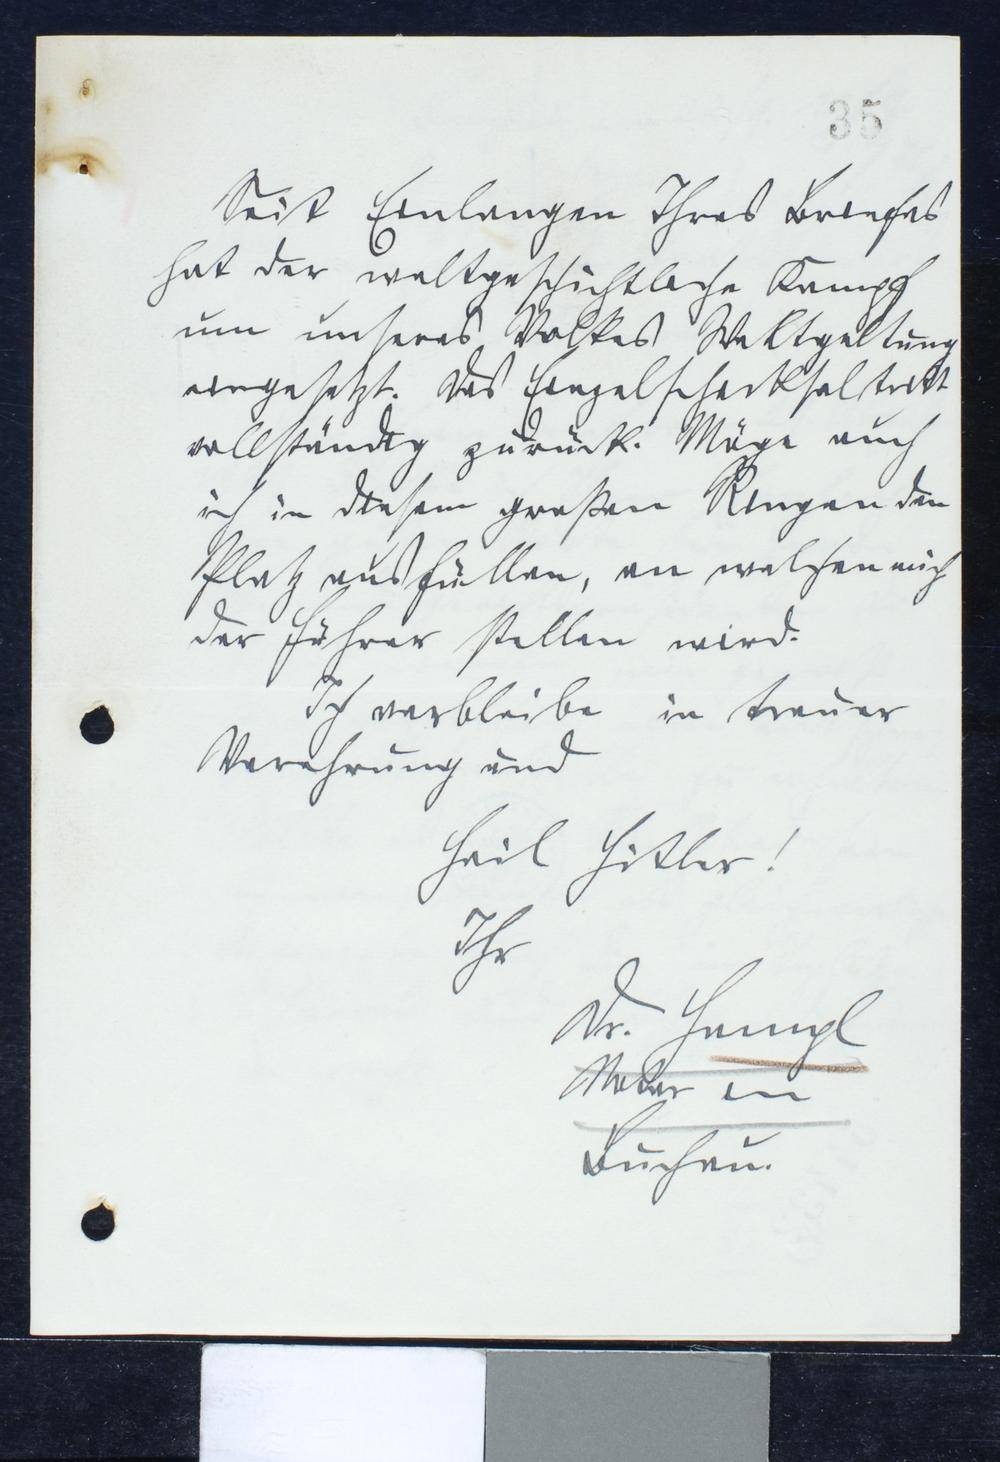 35
Seit Einlangen Ihres Briefes
hat der weltgeschichtliche Kampf
um unseres Volkes Weltgeltung
eingesetzt. Das Einzelschicksal tritt
vollständig zurück. Möge auch
ich in diesem großen Ringen den
Platz ausfüllen, an welchen mich
der Führer stellen wird.
Ich verbleibe in treuer
Verehrung und
Heil Hitler!
Ihr
Dr. Hampl
Notar in
Buchau.